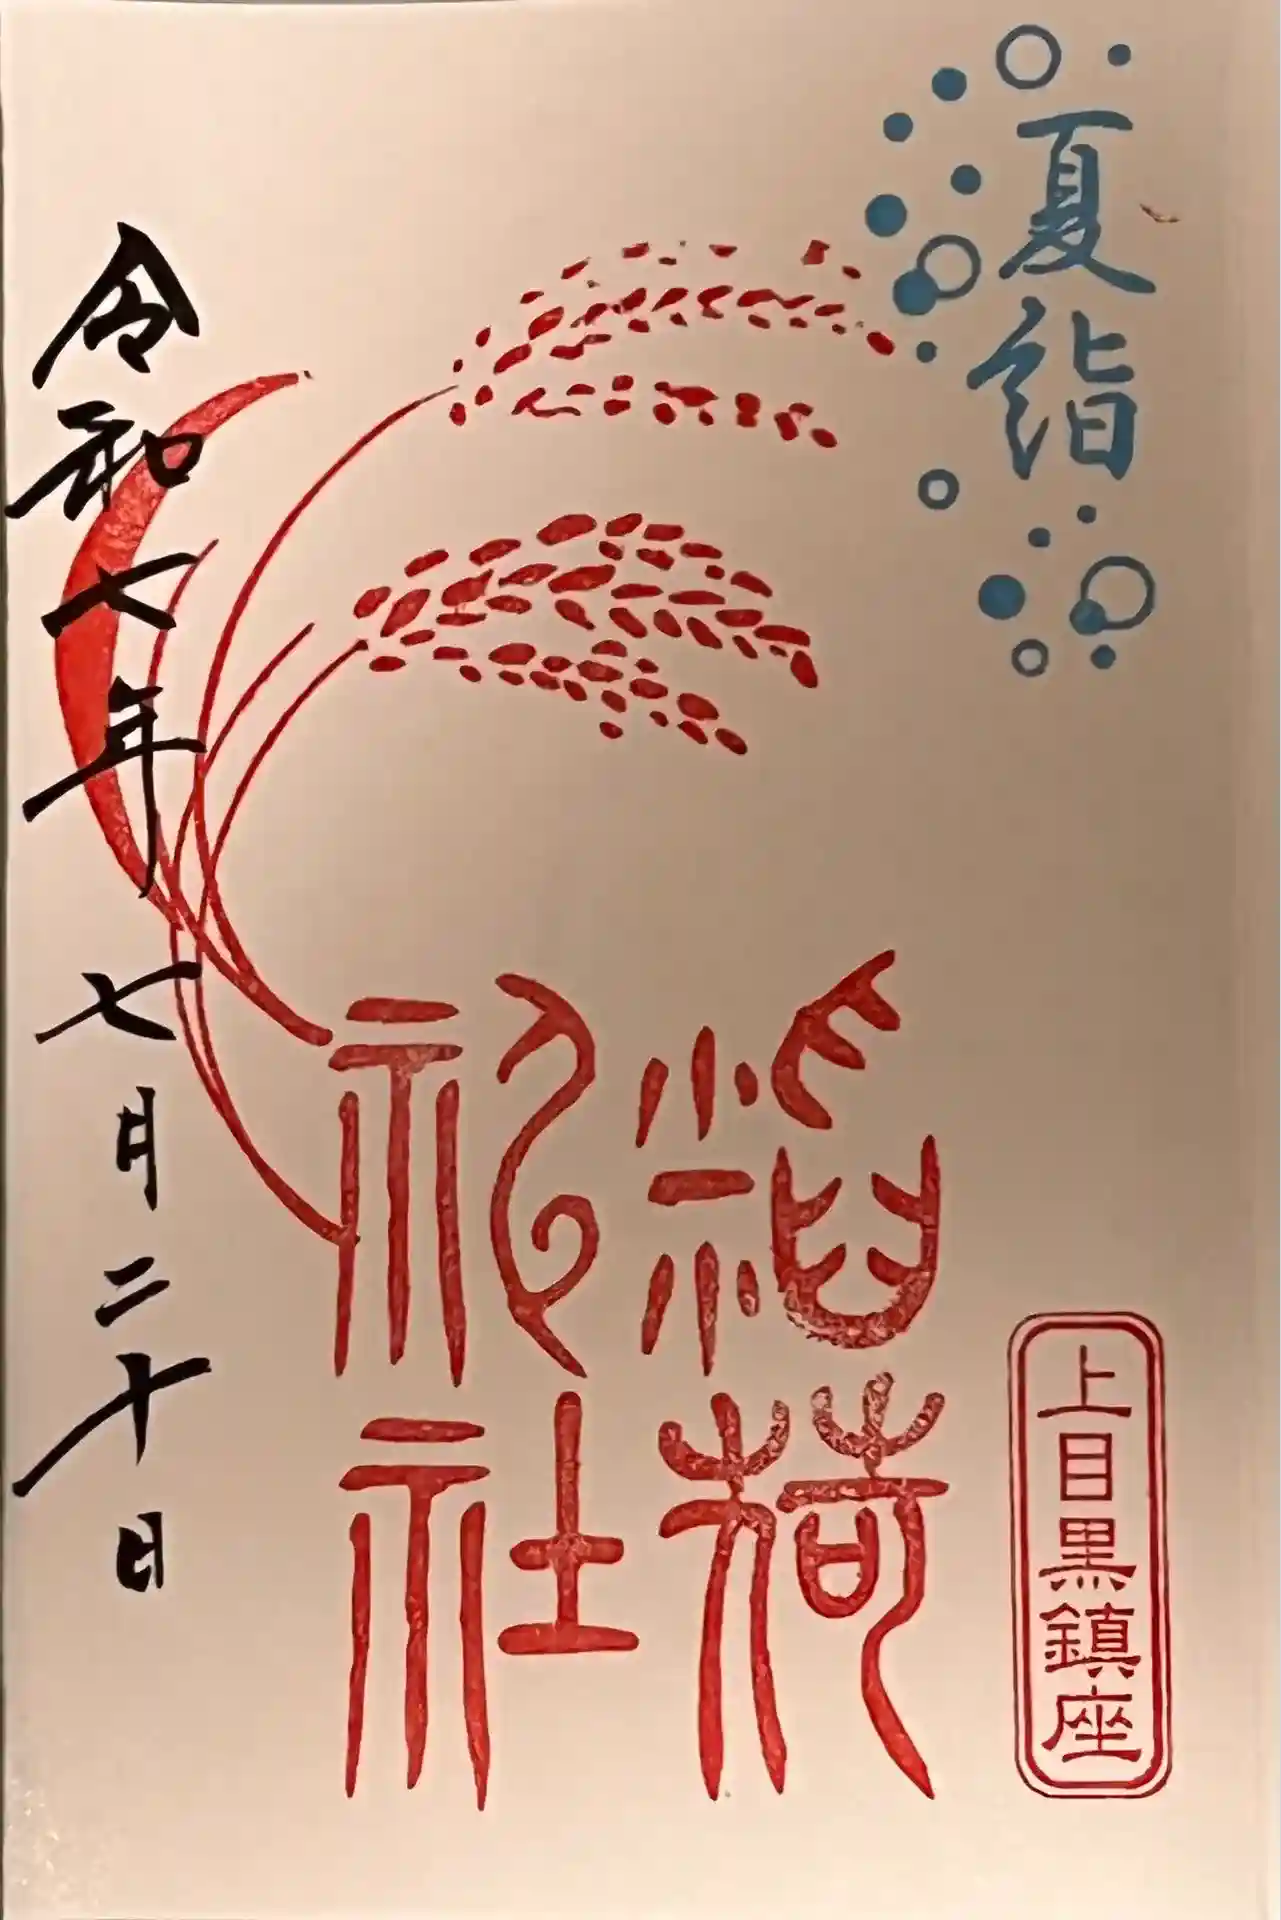 夏詣
上目黒鎮座
稲荷
神社
令和七年七月二十日